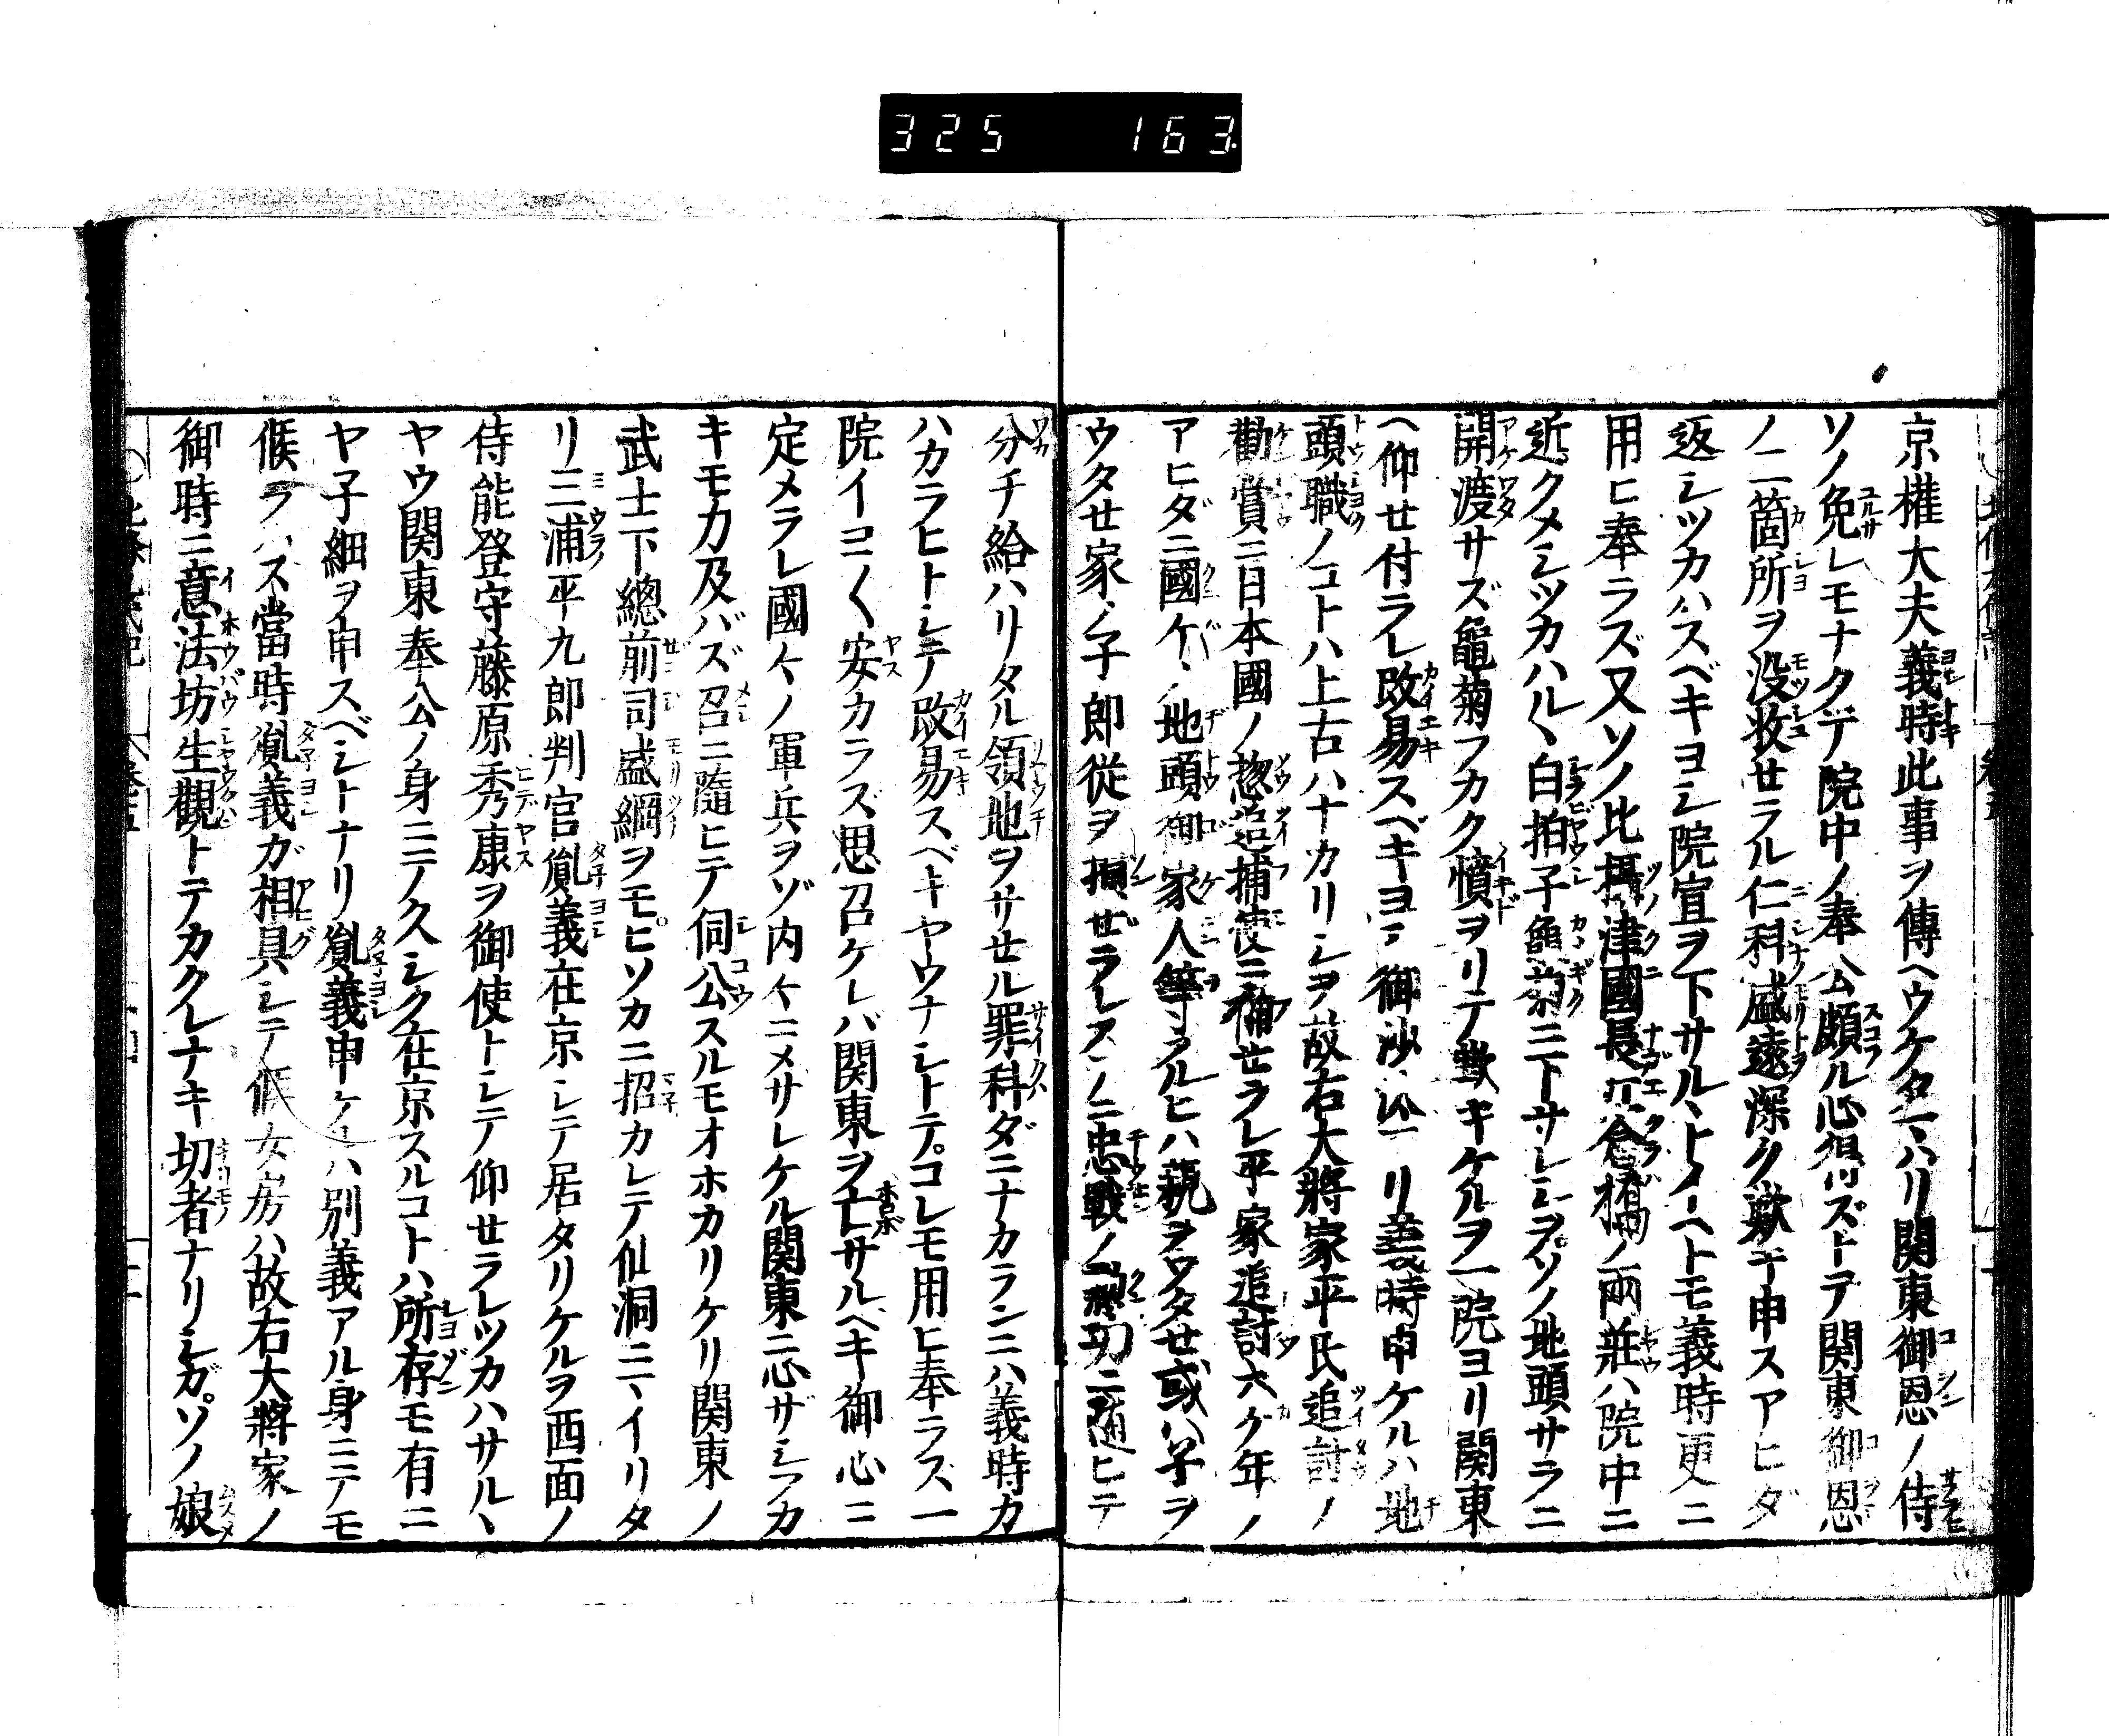 325 163
京權大夫義時此事ヲ傳ヘウケタマハリ関東御恩ノ侍
ソノ免レモナクテ院中ノ奉公頗ル心得ズトテ関東御恩
ノ二箇所ヲ没收セラル仁科盛遠深ク歎キ申スアヒダ
返シツカハスベキヨシ院宣ヲ下サルヽトイヘトモ義時更ニ
用ヒ奉ラズ又ソノ比攝津國長江倉橋ノ兩莊ハ院中ニ
近クメシツカハルヽ白拍子龜菊ニ下サレシヲソノ地頭サラニ
開渡サズ龜菊フカク憤ヲリテ歎キケルヲ一院ヨリ関東
ヘ仰せ付ラレ改易スベキヨシ御沙汰アリ義時申ケルハ地
頭職ノコトハ上古ハナカリシヲ故右大將家平氏追討ノ
勸賞ニ日本國ノ惣追捕使ニ補せラレ平家追討六ケ年ノ
アヒダニ國ケノ地頭御家人等アルヒハ親ヲウタせ或ハ子ヲ
ウタせ家ノ子郎従ヲ損ぜラレスノニ忠戰ノ勲功ニ隨ヒテ
分チ給ハリタル領地ヲサせル罪科ダニナカランニハ義時カ
ハカラヒトシテ改易スベキヤウナシトテコレモ用ヒ奉ラス一
院イヨ〱安カラズ思召ケレバ関東ヲ亡サルヘキ御心ニ
定メラレ國ケノ軍兵ヲゾ内ケニメサレケル関東ニ心ザシフカ
キモ力及バズ召ニ隨ヒテ伺公スルモオホカリケリ関東ノ
武士下總前司盛綱ヲモヒソカニ招カレテ仙洞ニイリタ
リ三浦平九郎判官胤義在京シテ居タリケルヲ西面ノ
侍能登守藤原秀康ヲ御使トシテ仰せラレツカハサルヽ
ヤウ関東奉公ノ身ニテ久シク在京スルコトハ所存モ有ニ
ヤ子細ヲ申スベシトナリ胤義申ケルハ別義アル身ニテモ
候ラハス當時胤義ガ相具シテ候女房ハ故右大將家ノ
御時ニ意法坊生觀トテカクレナキ切者ナリシガソノ娘